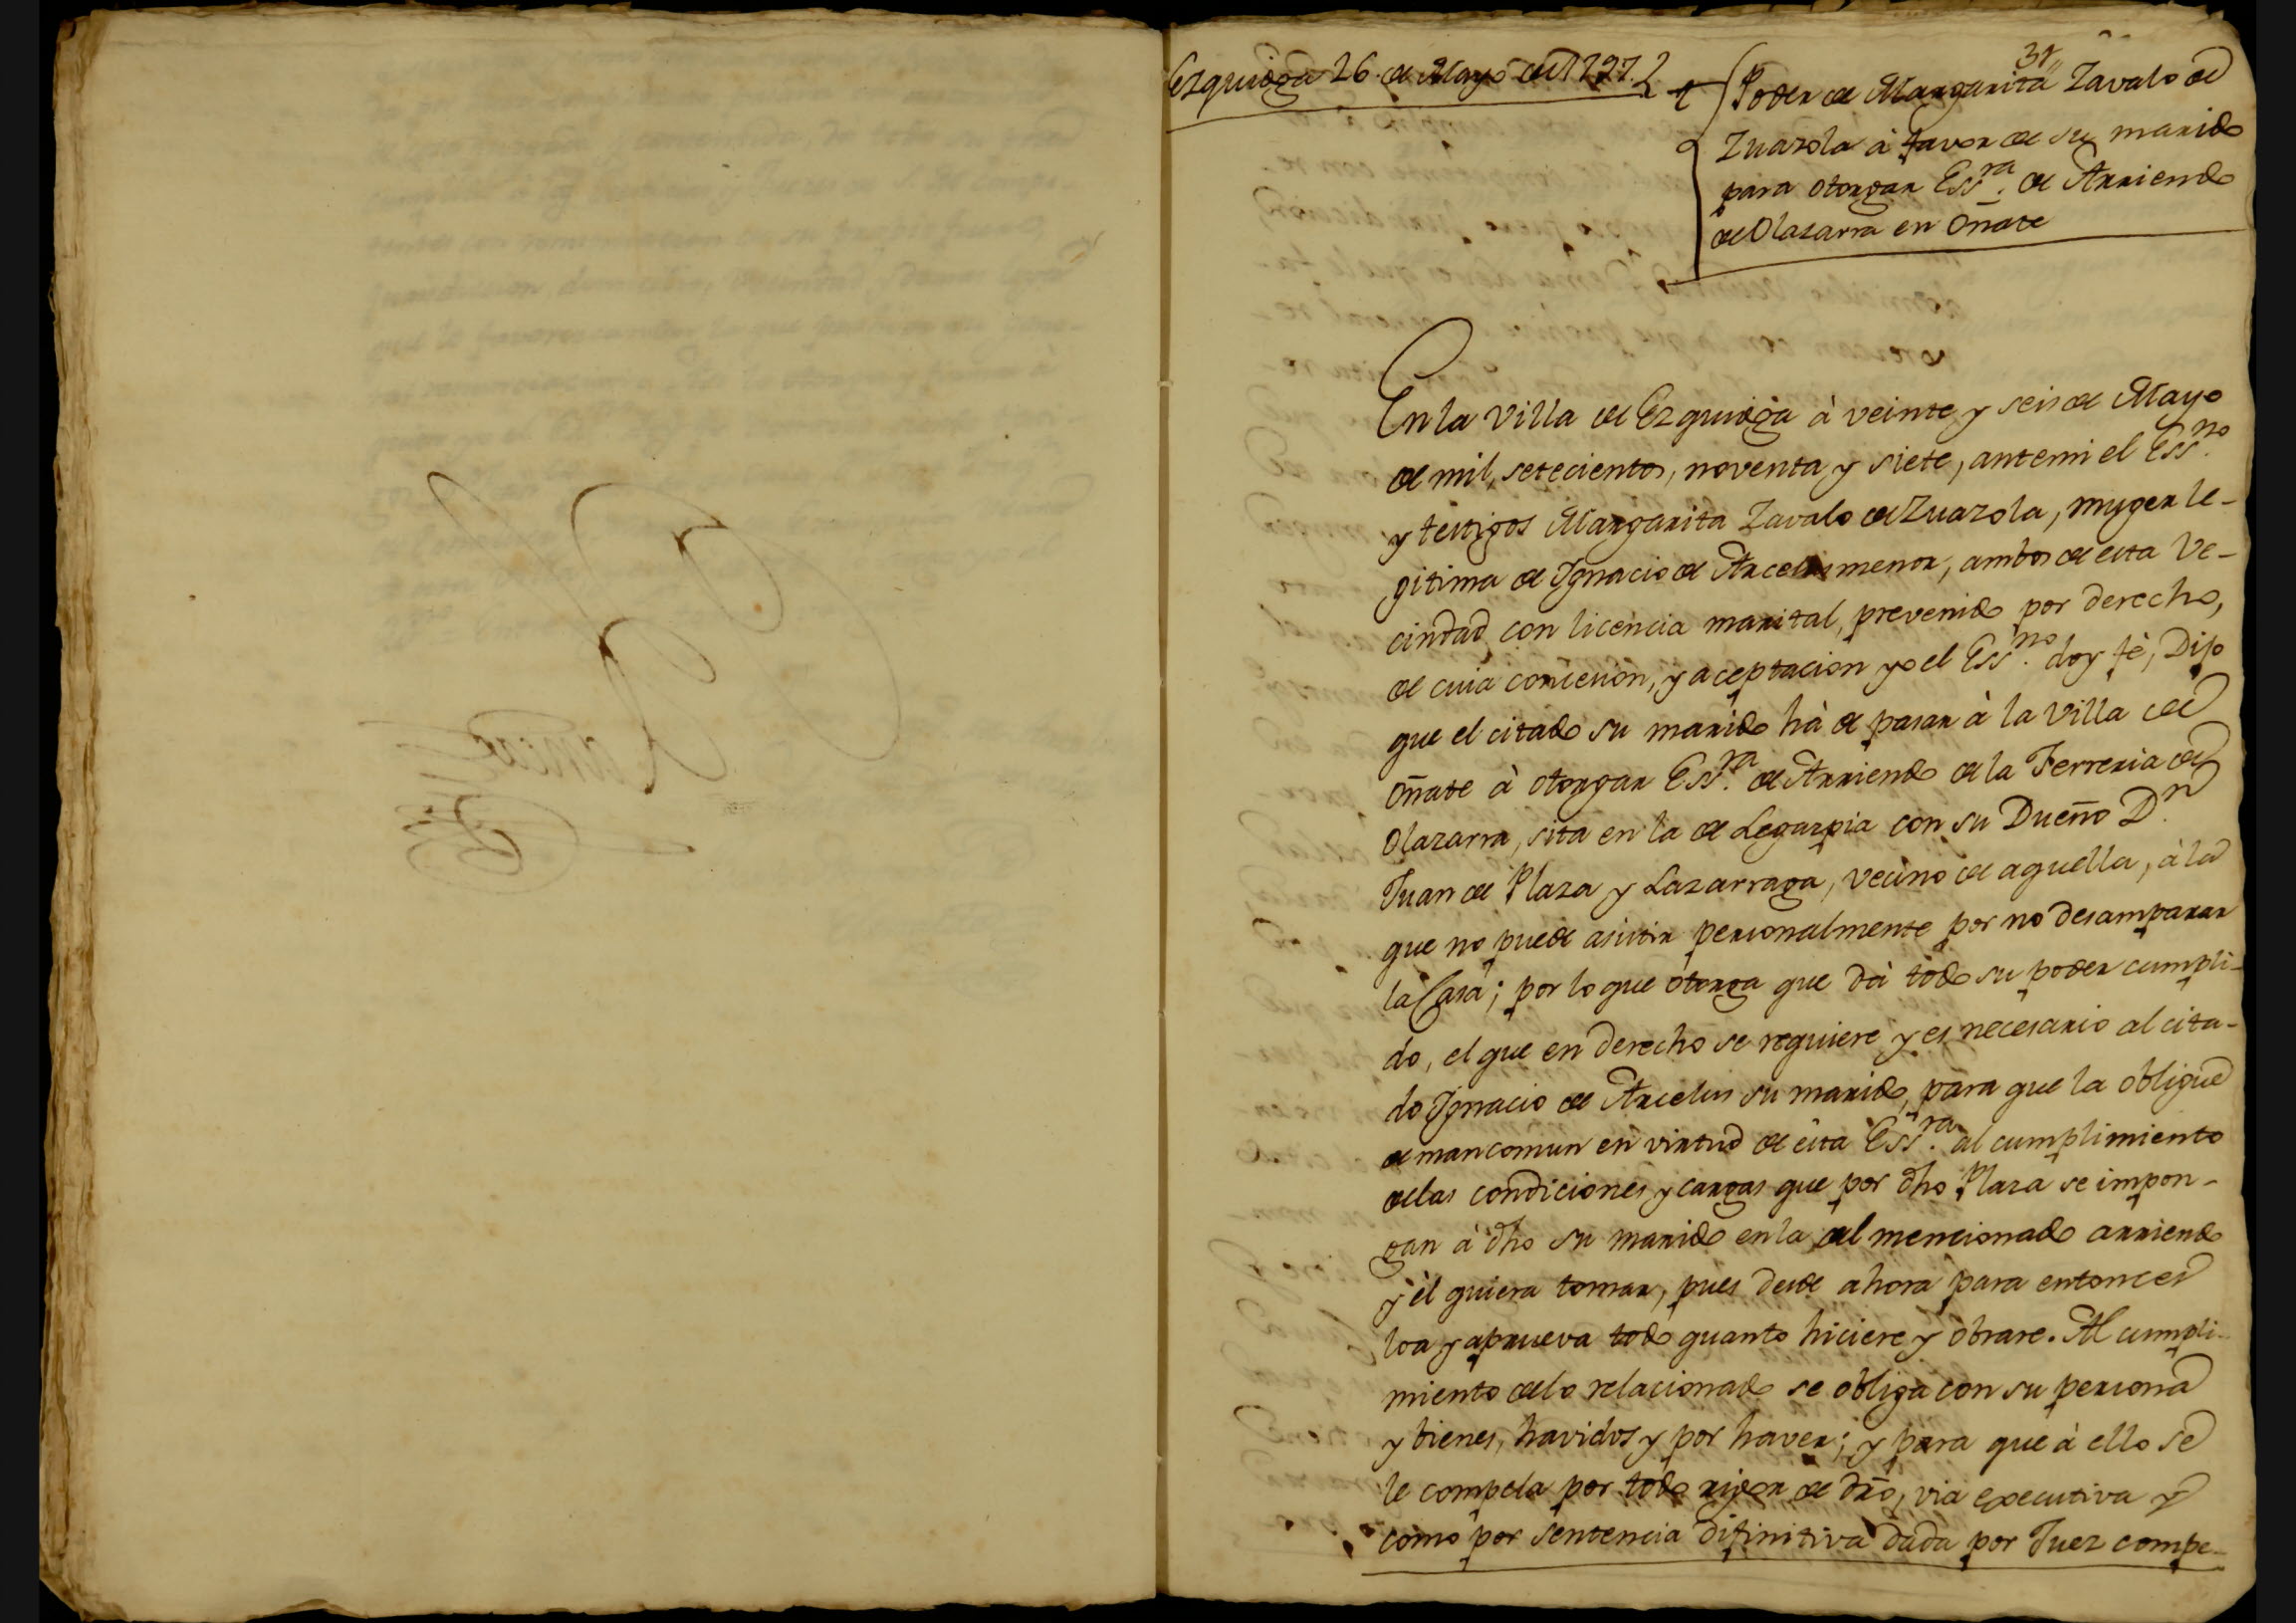 Ezquioga 26 de Mayo de 1797.
31
Poder de Margarita Zavalo de
Zuazola à favor de su marido
para otorgar Essra. de Arriendo
de Olazarra en Oñate
En la Villa de Ezquioga à veinte y seis de Mayo
de mil, setecientos, noventa y siete, antemi el Essno.
y testigos Margarita Zavalo de Zuazola, muger le-
gitima de Ignacio de Arcelus menor, ambos de esta Ve-
cindad con licencia marital, prevenido por derecho,
de cuia concesion, y aceptacion yo el Essno. doy fè, Dijo
que el citado su marido hà de pasar à la Villa de
Oñate à otorgar Essra. de Arriendo de la Ferreria de
Olazarra, sita en la de Legazpia con su Dueño Dn.
Juan de Plaza y Lazarraga, vecino de aquella, à la
que no puede asistir personalmente por no desamparar
la Casa; por lo que otorga que dà todo su poder cumpli-
do, el que en derecho se requiere y es necesario al cita-
do Ignacio de Arcelus su marido, para que la obligue
de mancomun en virtud de esta Essra. al cumplimiento
de las condiciones y cargas que por dho Plaza se impon-
gan à dho su marido en la del mencionado arriendo
y èl quiera tomar, pues desde ahora para entonces
loa y aprueva todo quanto hiciere y obrare. Al cumpli-
miento de lo relacionado se obliga con su persona
y bienes, havidos y por haver; y para que à ello se
le compela por todo rigor de dro, via executiva y
como por sentencia difinitiva dada por Juez compe-